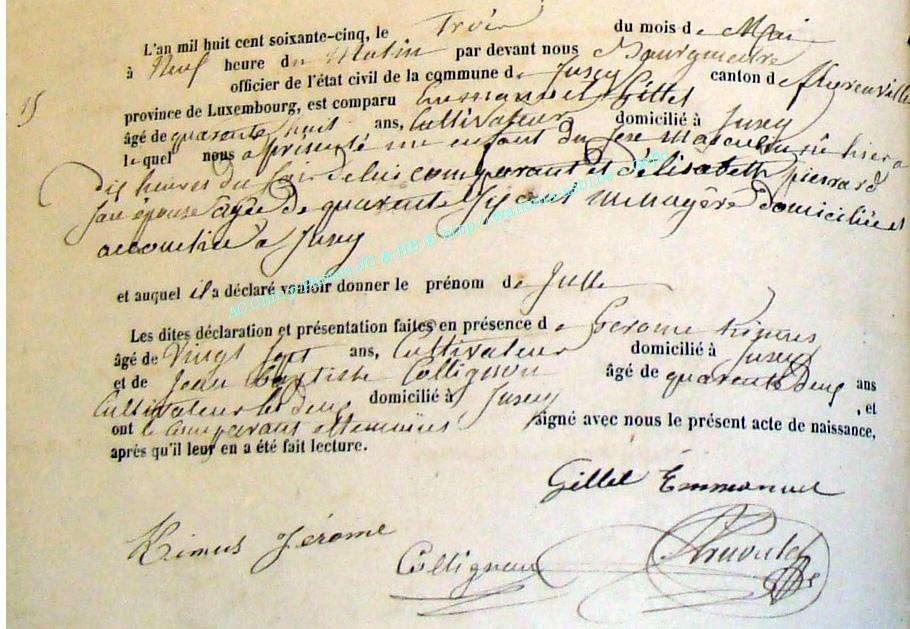 L'an mil huit cent soixante-cinq, le Trois du mois de Mai
à Neuf heure du Matin par devant nous Bourgmestre
15 officier de l'état civil de la commune de Jusey canton de
province de Luxembourg, est comparu Emmanuel Gillet
âgé de quarante huit ans, Cultivateur domicilié à Jusey
lequel nous a présenté un enfant du sexe masculin né hier à
dix heures du soir de lui comparant et d'Elisabeth pierrard
son épouse agée de quarante six ans ménagère domiciliée et
accouchée à Jusey
et auquel il a déclaré vouloir donner le prénom de Jule
Les dites déclaration et présentation faites en présence de Gerome Rimus
âgé de Vingt sept ans, Cultivateur domicilié à Jusey
et de Jean Baptiste Collignon âgé de quarante deux ans
Cultivateur les deux domicilié à Jusey , et
ont le comparant et temoins signé avec nous le présent acte de naissance,
après qu'il leur en a été fait lecture.
Gillet Emmanuel
Rimus Jérome
Collignon